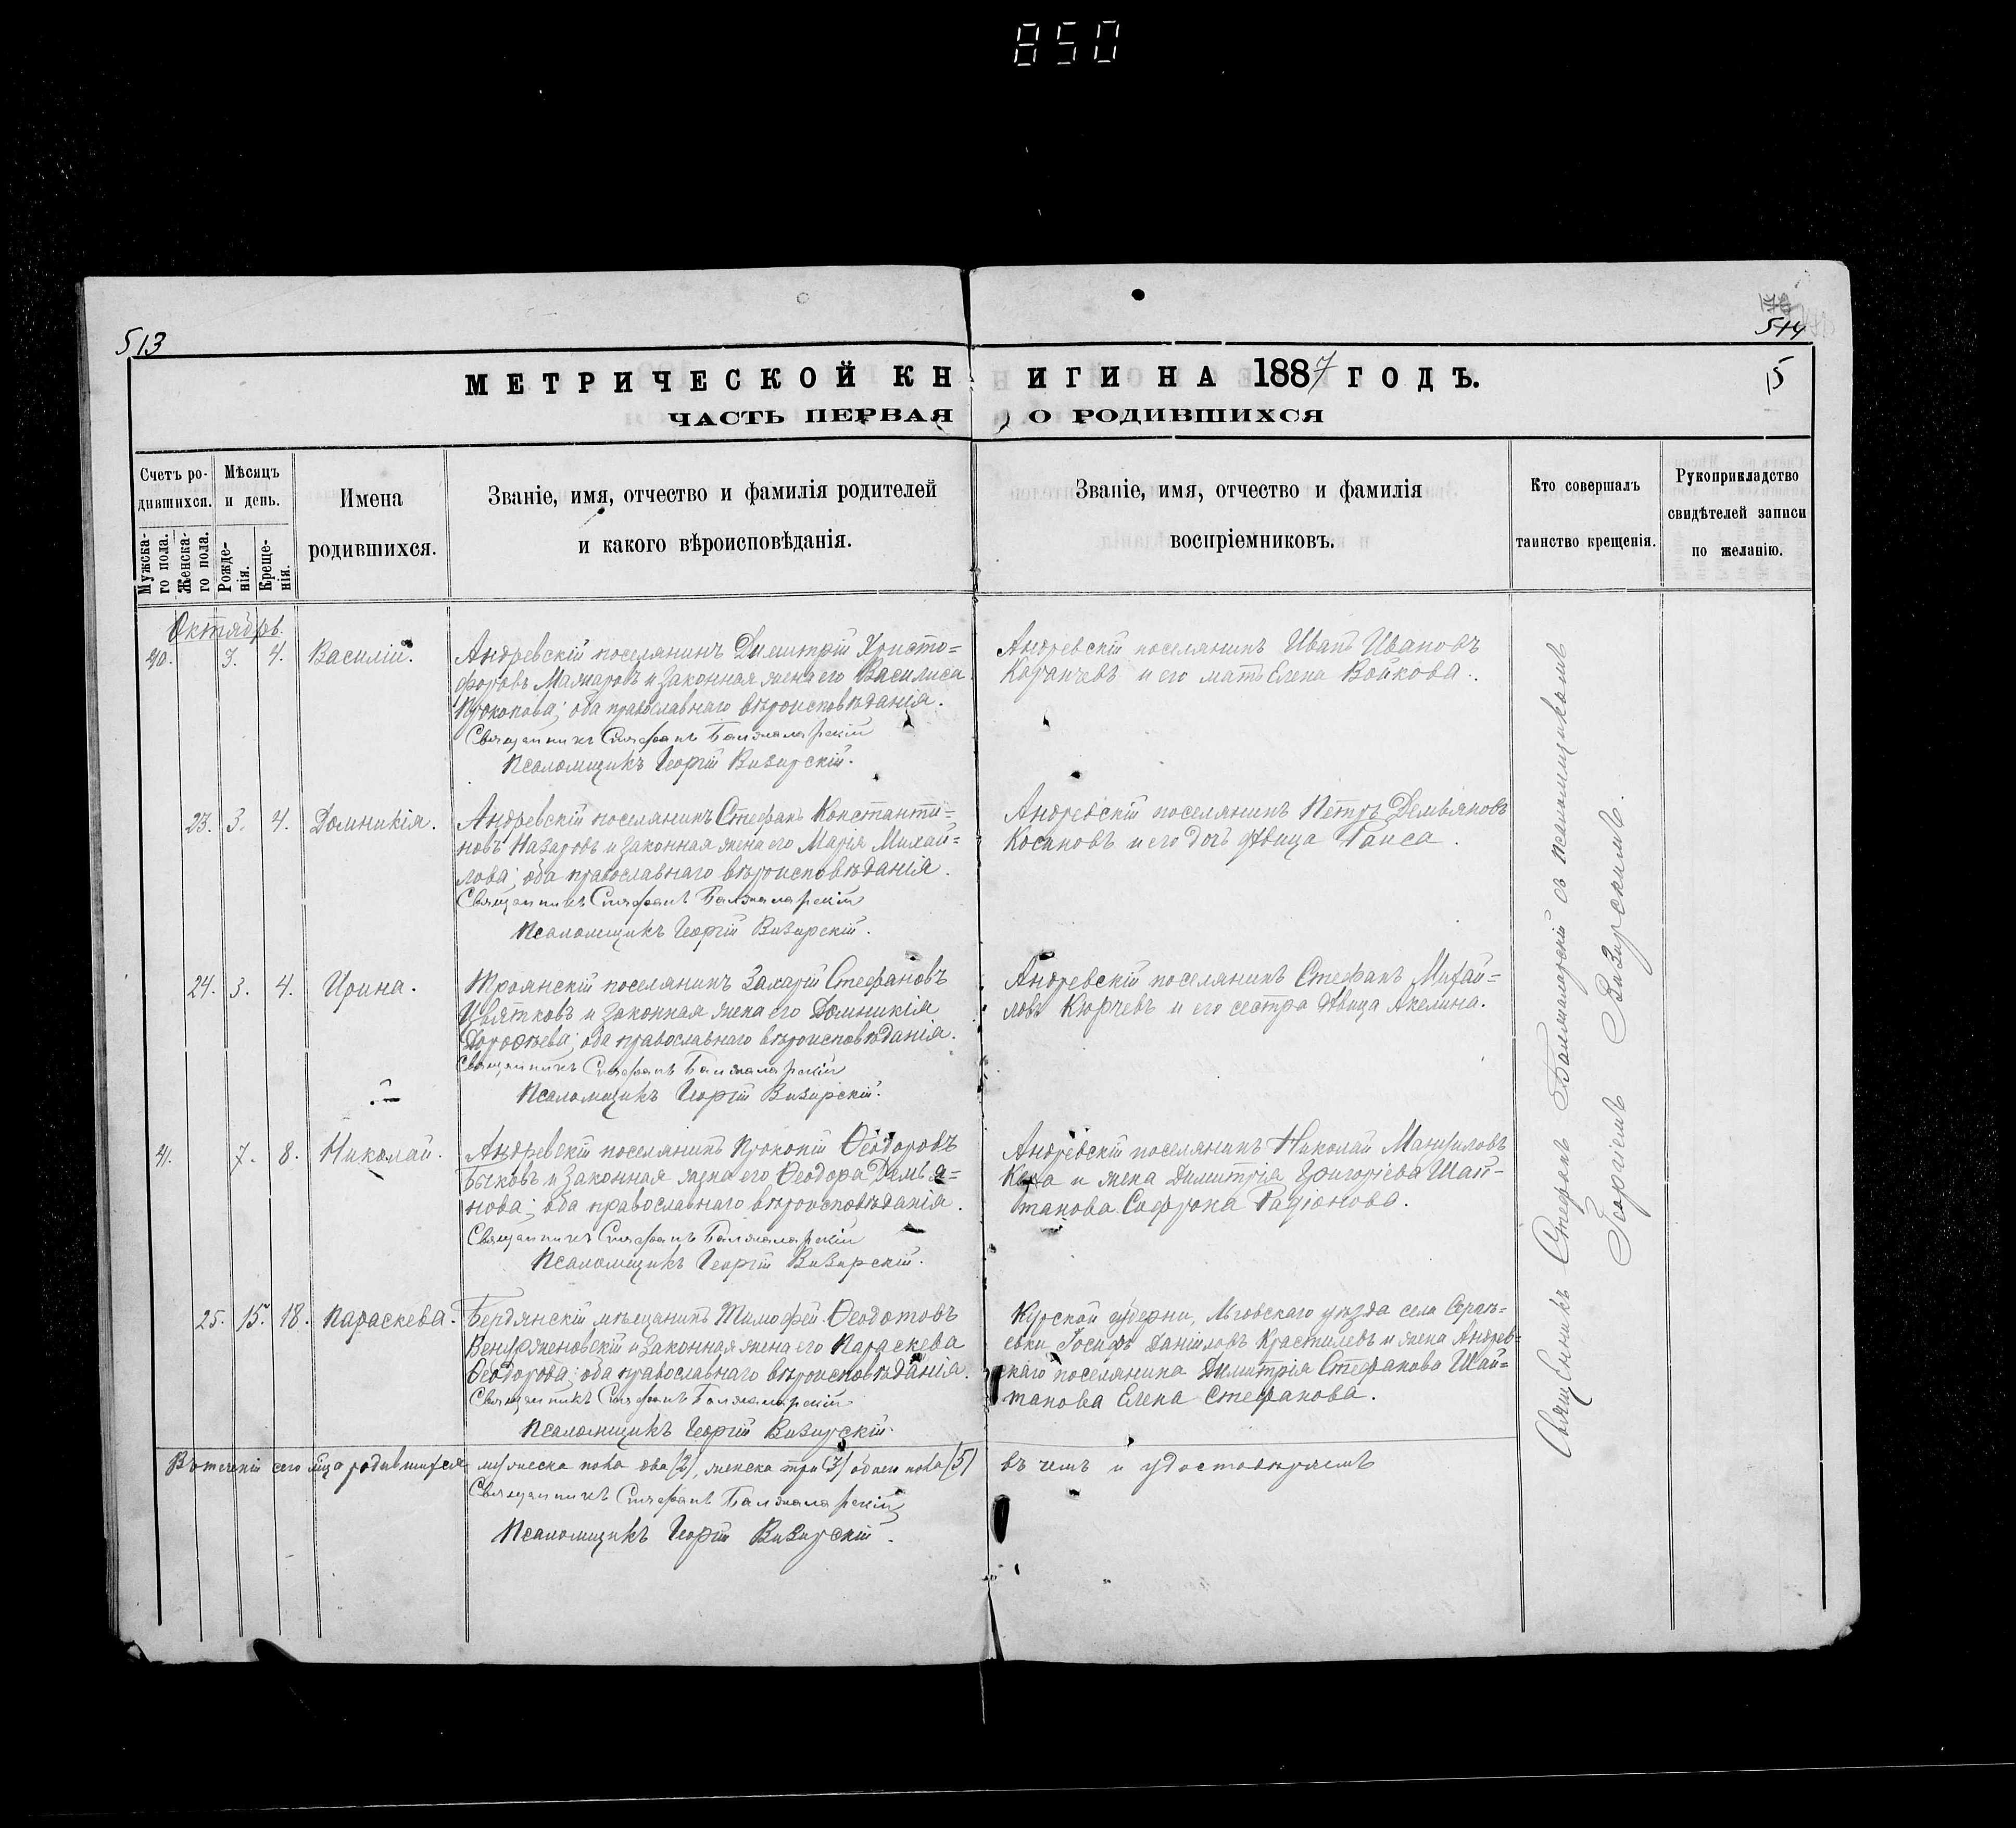 850
513
514
15
МЕТРИЧЕСКОЙ КНИГИ НА 1887 ГОДЪ.
ЧАСТЬ ПЕРВАЯ, О РОДИВШИХСЯ
Счетъ родившихся.
Мужскаго пола.
Женскаго пола.
Мѣсяцъ и день.
Рожденія.
Крещенія.
Имена
родившихся.
Званіе, имя, отчество и фамилія родителей
и какого вѣроисповѣданія.
Званіе, имя, отчество и фамилія
воспріемниковъ.
Кто совершалъ
таинство крещенія.
Рукоприкладство
свидѣтелей записи
по желанію.
Октябрь.
40. 3. 4. Василій.
Андревскій поселянинъ Димитрій Христо=
форовъ Мамаровъ и законная жена его Василиса
Прокопова; оба православнаго вѣроисповѣданія.
Священникъ Стефанъ Балжаларскій
Псаломщикъ Георгій Визирскій.
Андревскій поселянинъ Иванъ Ивановъ
Каранчевъ и его мать Елена Войкова.
23. 3. 4. Домникія.
Андревскій поселянинъ Стефанъ Константи=
новъ Назаровъ и законная жена его Марія Михай=
лова; оба православнаго вѣроисповѣданія.
Священникъ Стефанъ Балжаларскій
Псаломщикъ Георгій Визирскій.
Андревскій поселянинъ Петръ Демьяновъ
Косановъ и его дочь дѣвица Раиса.
24. 3. 4. Ирина.
Троянскій поселянинъ Захарій Стефановъ
Цвятковъ и законная жена его Домникія
Дорофѣева; оба православнаго вѣроисповѣданія.
Священникъ Стефанъ Балжаларскій
Псаломщикъ Георгій Визирскій.
Андревскій поселянинъ Стефанъ Михай=
ловъ Кюрчевъ и его сестра дѣвица Акелина.
41. 7. 8. Николай.
Андревскій поселянинъ Прокопій Ѳеодоровъ
Быковъ и законная жена его Ѳеодора Демья=
нова; оба православнаго вѣроисповѣданія.
Священникъ Стефанъ Балжаларскій
Псаломщикъ Георгій Визирскій.
Андревскій поселянинъ Николай Мануиловъ
и жена Димитрія Григоріева Шай=
танова Софрона Радіонова.
25. 15. 18. Параскева.
Бердянскій мѣщанинъ Тимофей Ѳеодотовъ
и законная жена его Параскева
Ѳеодорова; оба православнаго вѣроисповѣданія.
Священникъ Стефанъ Балжаларскій
Псаломщикъ Георгій Визирскій.
Курской губерни, Льговскаго уѣзда села Сергѣ=
евки Іосифъ Даніиловъ Крастилевъ и жена Андрев=
скаго поселянина Димитрія Стефанова Шай=
танова Елена Стефанова.
Въ теченіи сего м-ца родившихся мужеска пола два (2), женска три (3) обоего пола (5) въ чемъ и удостовѣряемъ
Священникъ Стефанъ Балжаларскій
Псаломщикъ Георгій Визирскій.
Священникъ Стефанъ Балжаларскій съ псаломщикомъ
Георгіемъ Визирскимъ.